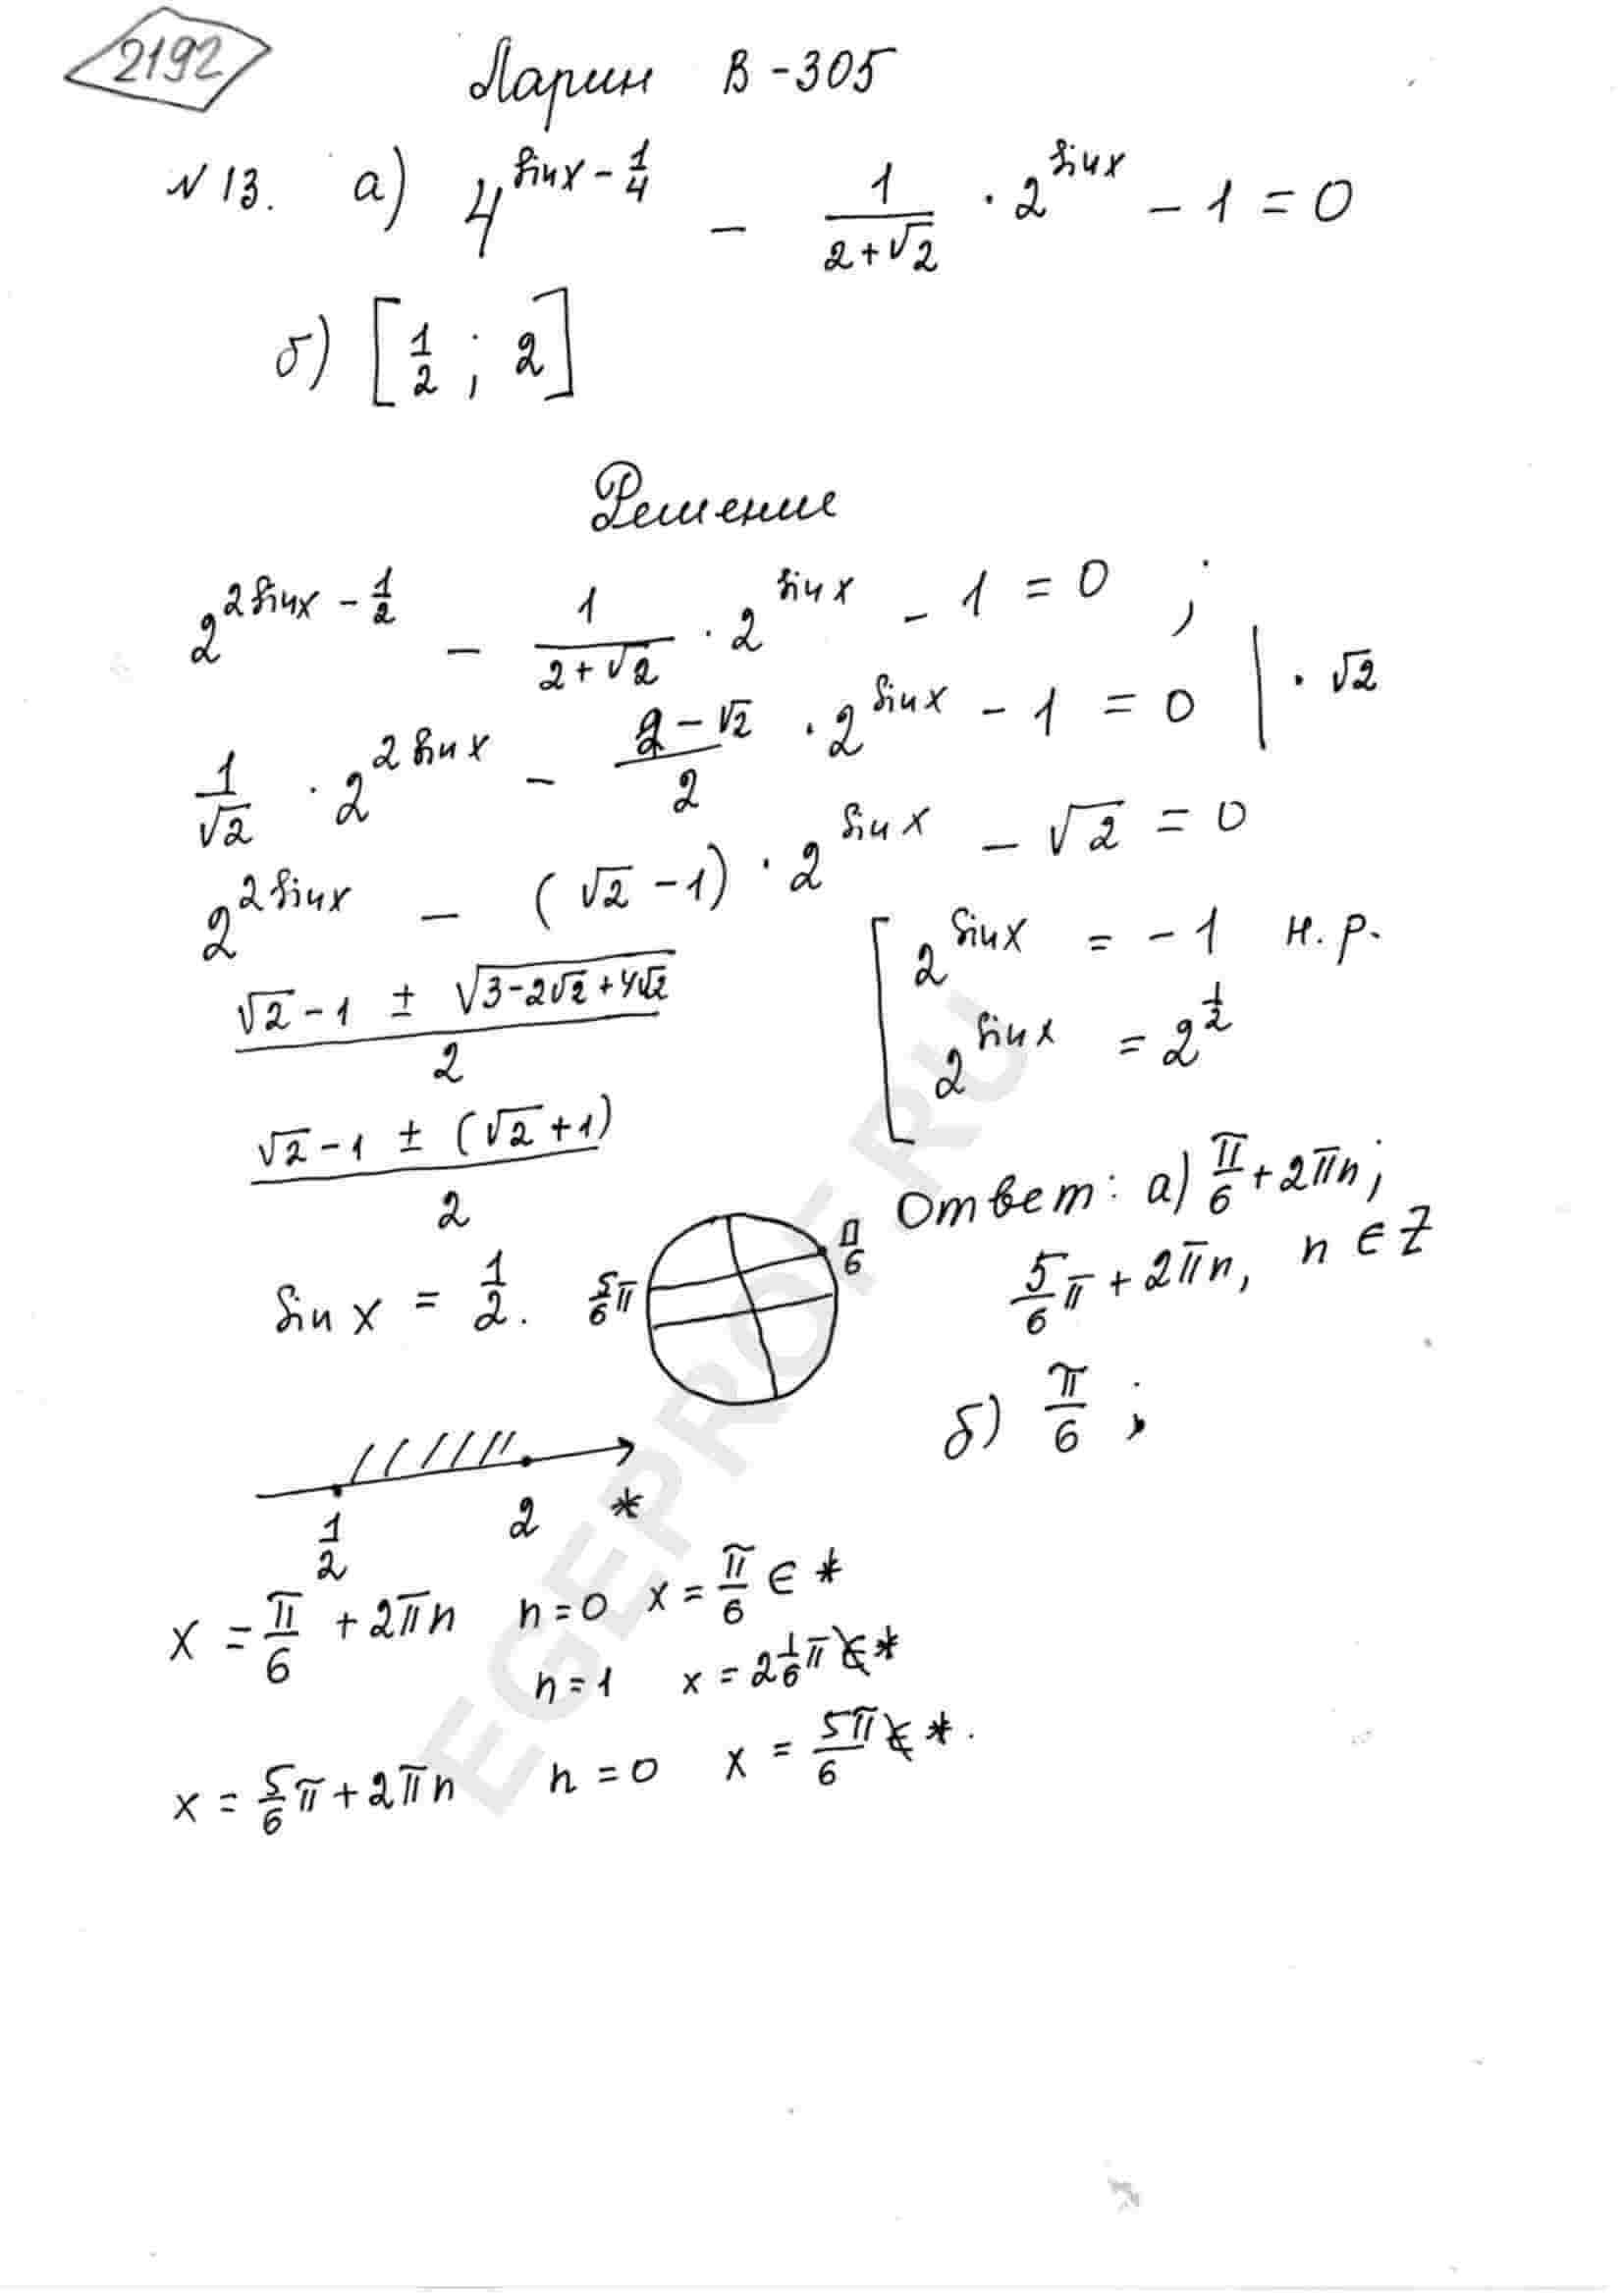 2192
Ларин В-305
№13. а) 4^(sinx - 1/4) - 1/(2+√2) · 2^(sinx) - 1 = 0
б) [1/2 ; 2]
Решение
2^(2sinx - 1/2) - 1/(2+√2) · 2^(sinx) - 1 = 0 ;
1/√2 · 2^(2sinx) - (2-√2)/2 · 2^(sinx) - 1 = 0 | · √2
2^(2sinx) - (√2 - 1) · 2^(sinx) - √2 = 0
(√2 - 1 ± √(3-2√2+4√2))/2
[ 2^(sinx) = -1 н.р.
2^(sinx) = 2^(1/2)
(√2 - 1 ± (√2+1))/2
sinx = 1/2.
5/6 π
π/6
Ответ: а) π/6 + 2πn;
5/6 π + 2πn, n ∈ Z
б) π/6 ;
1/2 2 *
x = π/6 + 2πn n=0 x = π/6 ∈ *
n=1 x = 2 1/6 π ∉ *
x = 5/6 π + 2πn n=0 x = 5π/6 ∉ *.
EGEPROF.RU